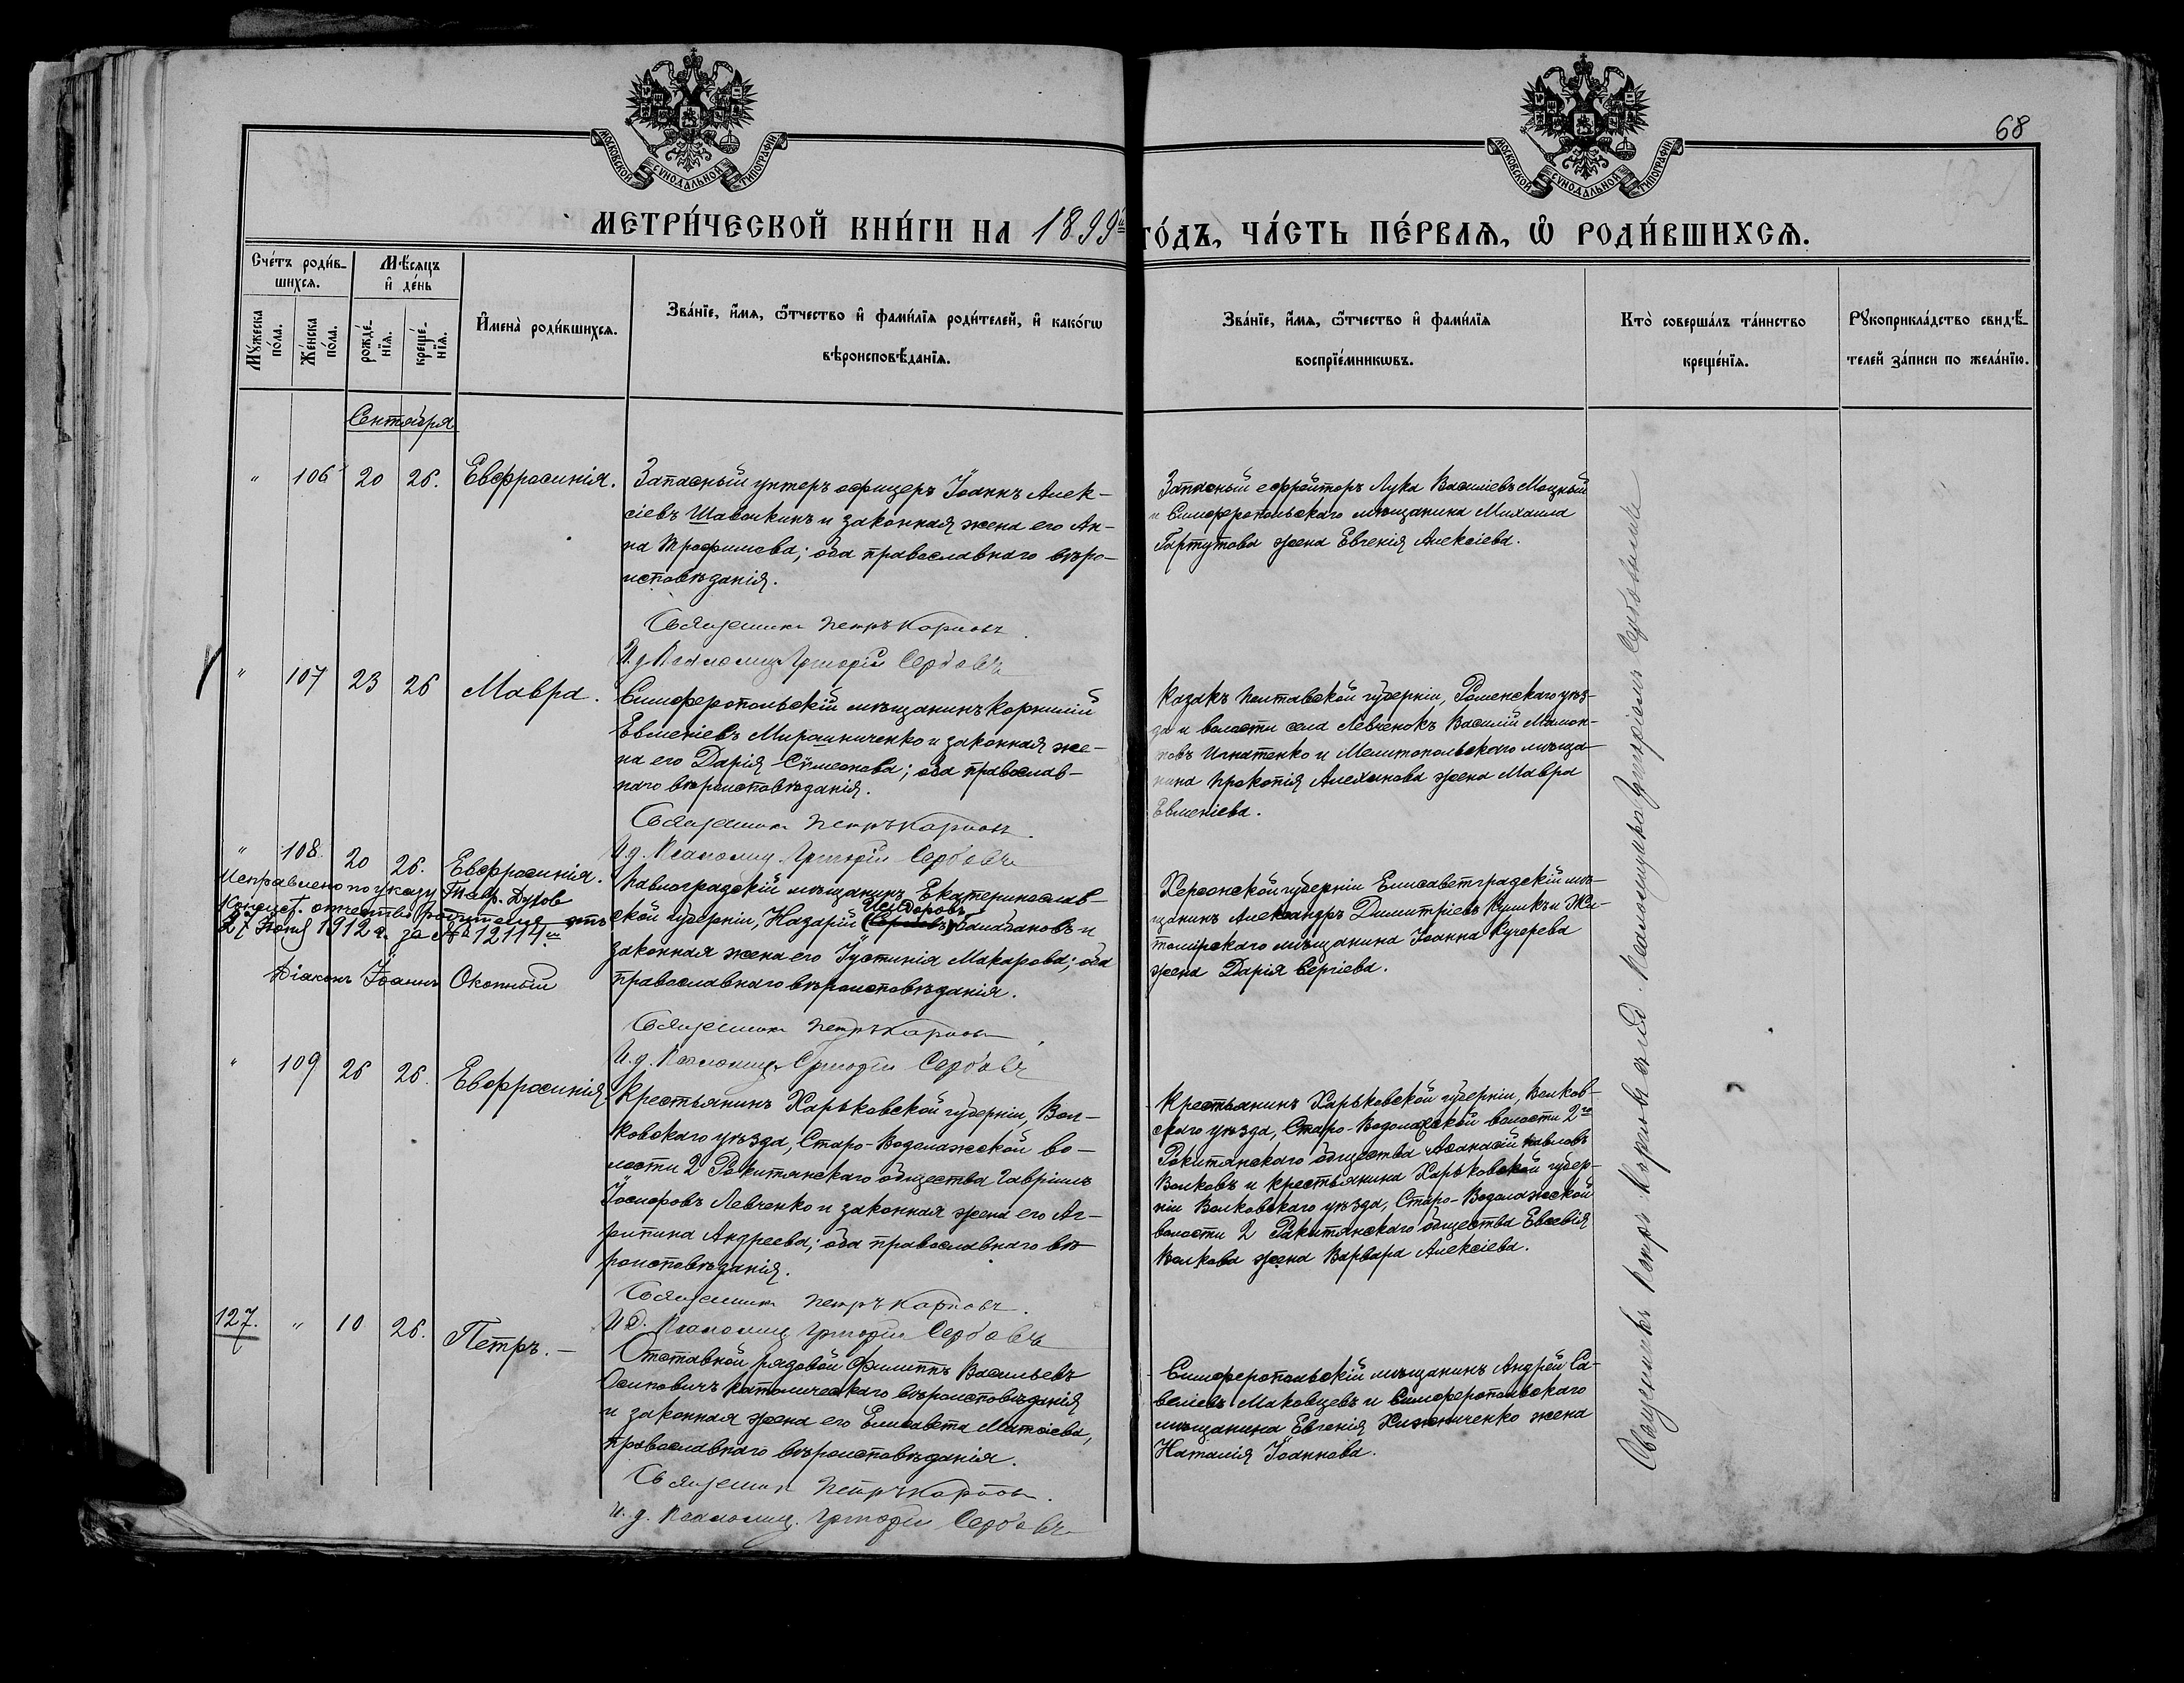 68
МОСКОВСКОЙ СУНОДАЛЬНОЙ ТИПОГРАФІИ
МОСКОВСКОЙ СУНОДАЛЬНОЙ ТИПОГРАФІИ
МЕТРИ́ЧЕСКОЙ КНИ́ГИ НА 1899й ГО́ДЪ, ЧА́СТЬ ПЕ́РВАѦ, Ѽ РОДИ́ВШИХСѦ.
Сче́тъ роди́в-
шихсѧ.
Мꙋ́жеска по́ла.
Же́нска по́ла.
Мѣ́сяцъ
и҆ де́нь
рожде́-
нїѧ.
креще́-
нїѧ.
И҆мена̀ роди́вшихсѧ.
Зва́нїе, и҆́мѧ, ѻ҆́тчество и҆ фами́лїѧ роди́телей, и҆ како́гѡ
вѣроисповѣ́данїѧ.
Зва́нїе, и҆́мѧ, ѻ҆́тчество и҆ фами́лїѧ
воспрїе́мникѡвъ.
Кто̀ соверша́лъ та́инство
креще́нїѧ.
Рꙋкоприкла́дство свидѣ́-
телей за́писи по жела́нїю.
Сентября
" 106 20 26. Евфросинія.
Запасный унтеръ офицеръ Іоаннъ Алек-
сіевъ Шаволкинъ и законная жена его Ан-
на Трофимова; оба православнаго вѣро-
исповѣданія.
Священникъ Петръ Карповъ.
И. д. Псаломщ. Григорій Сербовъ
Запасный ефрейторъ Лука Василіевъ Моцный
и Симферопольскаго мѣщанина Михаила
Гартутова жена Евгенія Алексіева.
" 107 23 26 Мавра.
Симферопольскій мѣщанинъ Корнилій
Евменіевъ Мирошниченко и законная же-
на его Дарія Сѵмеонова; оба православ-
наго вѣроисповѣданія.
Священникъ Петръ Карповъ.
И. д. Псаломщ. Григорій Сербовъ
Казакъ Полтавской губерніи, Роменскаго уѣз-
да и волости села Левченокъ Василій Мамон-
товъ Игнатенко и Мелитопольскаго мѣща-
нина Прокопія Алеханова жена Мавра
Евменіева.
" 108. 20 26. Евфросинія.
Исправлено по указу Тавр. Духов
Консист. отчество родителя отъ
27 Іюня 1912 г. за № 12114м
Діаконъ Іоаннъ Окопный
Павлоградскій мѣщанинъ Екатеринослав-
ской губерніи, Назарій (Сергіевъ) Исидоровъ Балабановъ и
законная жена его Іустинія Макарова; оба
православнаго вѣроисповѣданія.
Священникъ Петръ Карповъ
И. д. Псаломщ. Григорій Сербовъ
Херсонской губерніи Елисаветградскій мѣ-
щанинъ Александръ Димитріевъ Кушкъ и Жи-
томірскаго мѣщанина Іоанна Кучерева
жена Дарія Сергіева.
" 109 26 26. Евфросинія.
Крестьянинъ Харьковской губерніи, Вал-
ковскаго уѣзда, Старо-Водолажской во-
лости 2 Ракитянскаго общества Гавріилъ
Іосифовъ Левченко и законная жена его Аг-
рипина Андреева; оба православнаго вѣ-
роисповѣданія.
Священникъ Петръ Карповъ.
И. д. Псаломщ. Григорій Сербовъ
Крестьянинъ Харьковской губерніи, Валков-
скаго уѣзда, Старо-Водолажской волости 2го
Ракитянскаго общества Аѳанасій Павловъ
Волковъ и крестьянина Харьковской губер-
ніи Валковскаго уѣзда, Старо-Водолажской
волости 2 Ракитянскаго общества Евсевія
Волкова жена Варвара Алексіева.
127. " 10 26. Петръ.
Отставной рядовой Филиппъ Васильевъ
Осиповичъ католическаго вѣроисповѣданія
и законная жена его Елисавета Матѳіева,
православнаго вѣроисповѣданія.
Священникъ Петръ Карповъ.
И. д. Псаломщ. Григорій Сербовъ
Симферопольскій мѣщанинъ Андрей Са-
веліевъ Маковцевъ и Симферопольскаго
мѣщанина Евгенія Хижниченко жена
Наталія Іоаннова.
Священникъ Петръ Карповъ съ и.д. псаломщика Григоріемъ Сербовымъ